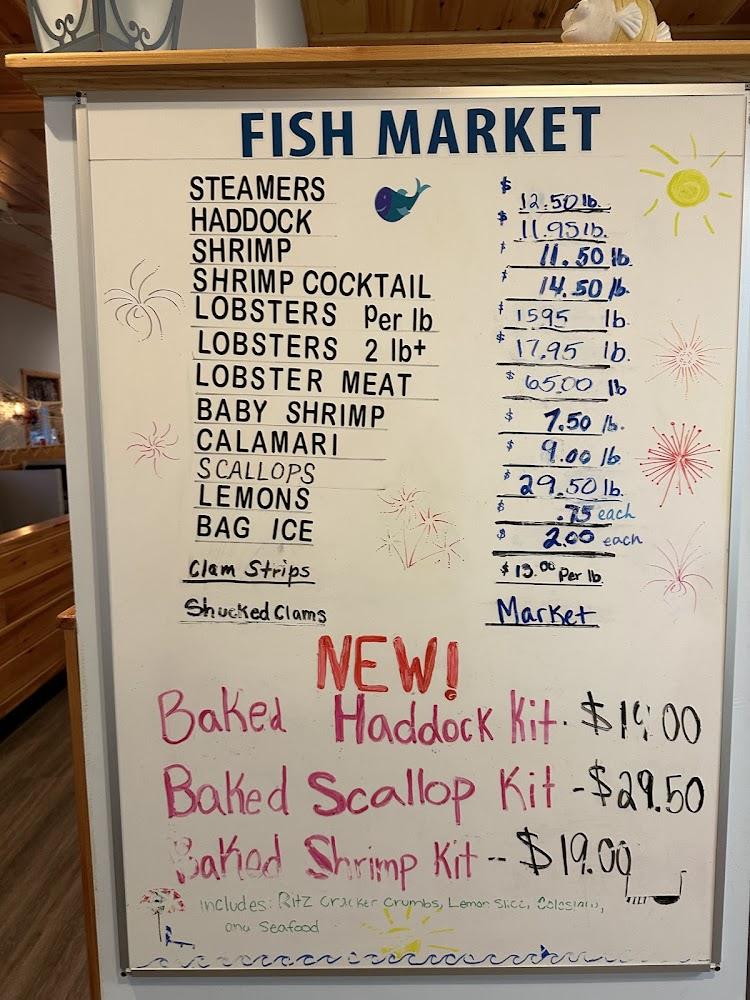 FISH MARKET
STEAMERS $ 12.50 lb.
HADDOCK $ 11.95 lb.
SHRIMP $ 11.50 lb.
SHRIMP COCKTAIL $ 14.50 lb.
LOBSTERS Per lb $ 1595 lb.
LOBSTERS 2 lb+ $ 17.95 lb.
LOBSTER MEAT $ 65.00 lb
BABY SHRIMP $ 7.50 lb.
CALAMARI $ 9.00 lb.
SCALLOPS $ 29.50 lb.
LEMONS $ .75 each
BAG ICE $ 2.00 each
Clam Strips Per lb.
Shucked Clams Market
NEW!
Baked Haddock Kit.
Baked Scallop Kit - $29.50
Baked Shrimp Kit -- $19.00
includes: Ritz Cracker Crumbs, Lemon Slice,
and Seafood